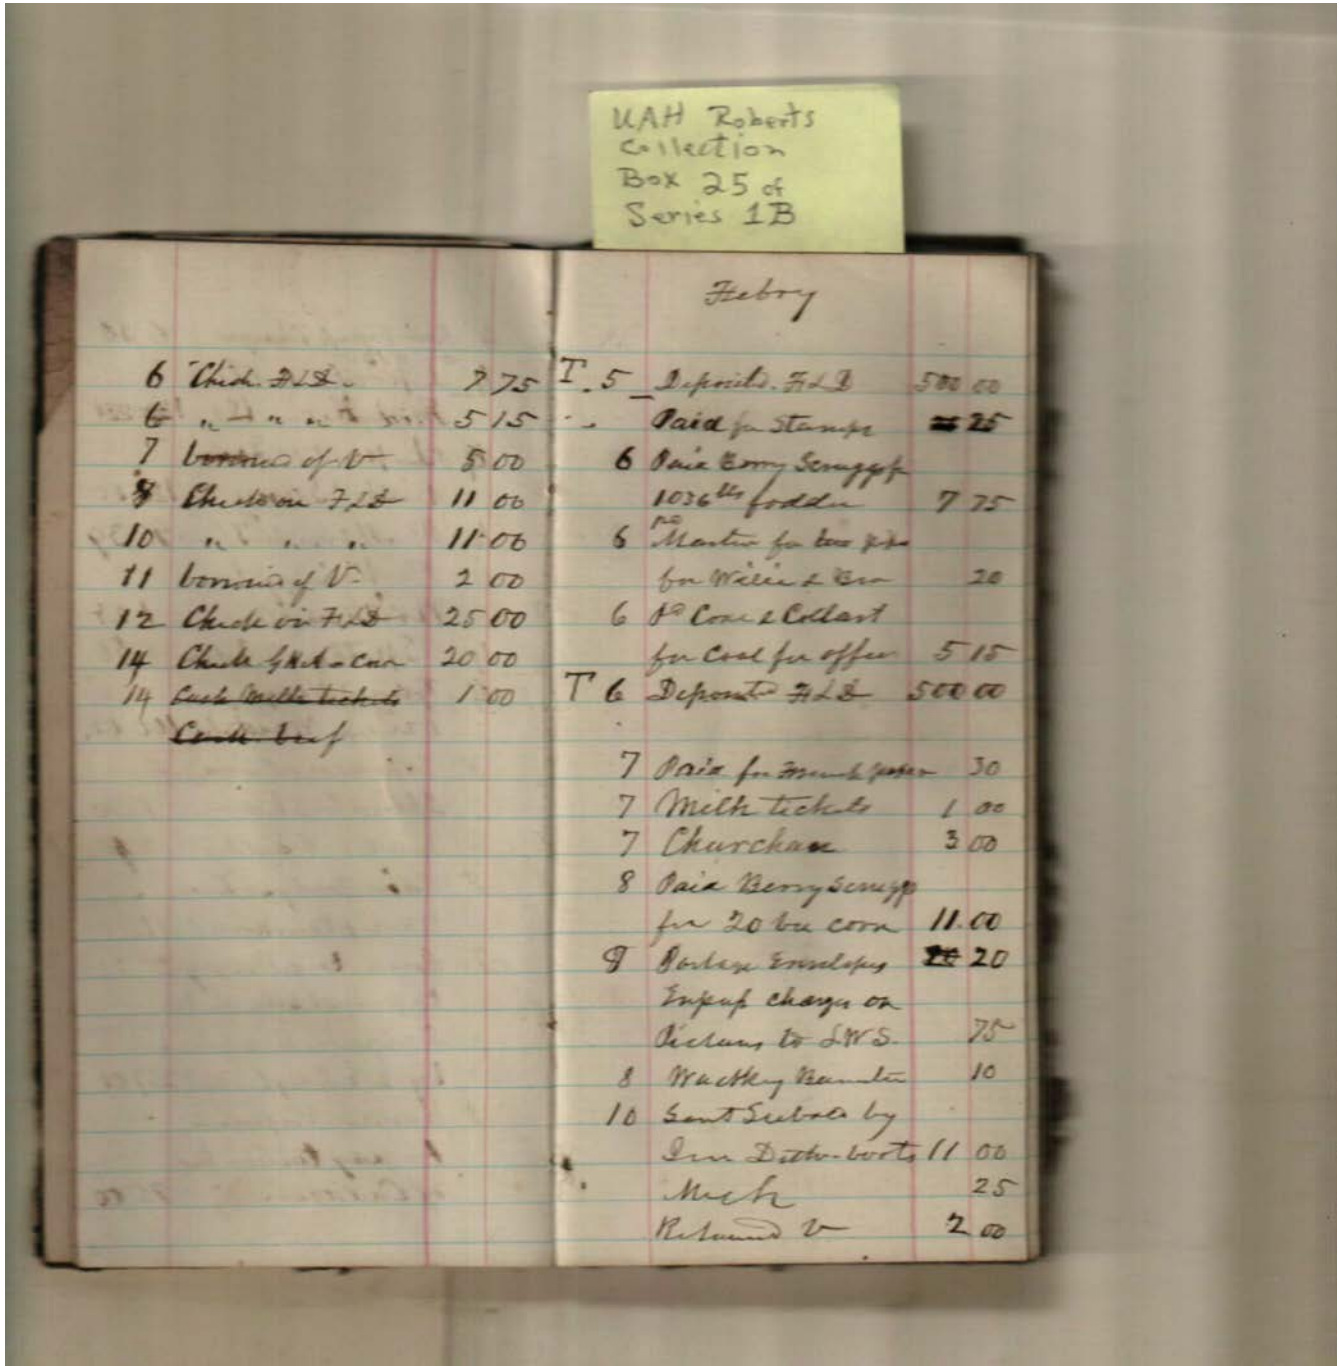 UAH Roberts
Collection
Box 25 of
Series 1B
6 Check. F L D. 7 75
6 „ „ „ 5 15
7 borrowed of V. 5 00
8 Check on F L D 11 00
10 „ „ „ 11 00
11 borrowed of V. 2 00
12 Check on F L D 25 00
14 Check 20 00
14 Cash Milk tickets 1 00
Cash beef
Febry
T. 5 Deposits. F L D 500 00
Paid for Stamps 25
6 Paid Berry Scruggs for
1036 lbs fodder 7 75
6 Pd Martin for two
for Willie & Bro 20
6 Pd Cone & Collart
for Coal for office 5 15
T 6 Deposits F L D 500 00
7 Paid for 30
7 Milk tickets 1 00
7 3 00
8 Paid Berry Scruggs
for 20 bu corn 11.00
8 Postage Envelopes 20
charges on
Pictures to S.W.S. 75
8 10
10 Sent by
boots 11 00
25
Returned V 2 00